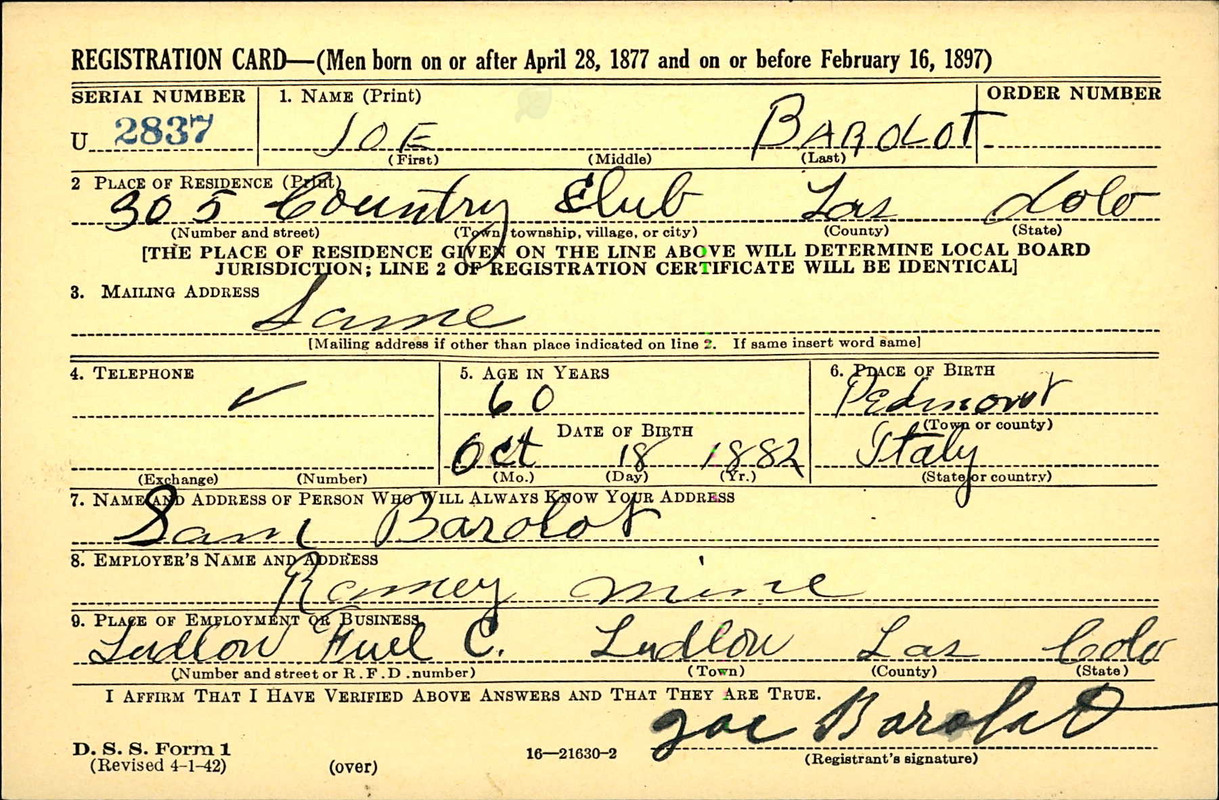 REGISTRATION CARD—(Men born on or after April 28, 1877 and on or before February 16, 1897)
SERIAL NUMBER 1. NAME (Print) ORDER NUMBER
U 2837 JOE BAROLOT
(First) (Middle) (Last)
2 PLACE OF RESIDENCE (Print)
305 Country Club Las Colo
(Number and street) (Town, township, village, or city) (County) (State)
[THE PLACE OF RESIDENCE GIVEN ON THE LINE ABOVE WILL DETERMINE LOCAL BOARD
JURISDICTION; LINE 2 OF REGISTRATION CERTIFICATE WILL BE IDENTICAL]
3. MAILING ADDRESS
Same
[Mailing address if other than place indicated on line 2. If same insert word same]
4. TELEPHONE 5. AGE IN YEARS 6. PLACE OF BIRTH
60 Pedmont
DATE OF BIRTH (Town or county)
Oct 18 1882 Italy
(Exchange) (Number) (Mo.) (Day) (Yr.) (State or country)
7. NAME AND ADDRESS OF PERSON WHO WILL ALWAYS KNOW YOUR ADDRESS
Sam Barolot
8. EMPLOYER'S NAME AND ADDRESS
Ramey mine
9. PLACE OF EMPLOYMENT OR BUSINESS
Ludlow Fuel C. Ludlow Las Colo
(Number and street or R. F. D. number) (Town) (County) (State)
I AFFIRM THAT I HAVE VERIFIED ABOVE ANSWERS AND THAT THEY ARE TRUE.
Joe Barolot
D. S. S. Form 1 16—21630-2 (Registrant's signature)
(Revised 4-1-42) (over)